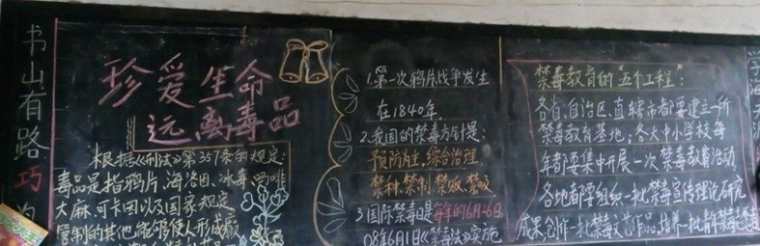 书山有路巧
珍爱生命
远离毒品
根据《刑法》第357条的规定:
毒品是指鸦片、海洛因、冰毒、吗啡
大麻、可卡因以及国家规定
管制的其他能够使人形成瘾
1.第一次鸦片战争发生
在1840年.
2.我国的禁毒方针是:
预防为主,综合治理
禁种、禁制、禁贩、禁吸
3.国际禁毒日是每年的6月26日
08年6月1日《禁毒法》实施
禁毒教育的"五个工程":
各省、自治区、直辖市都要建立一所
禁毒教育基地;各大中小学校每
年都要集中开展一次禁毒教育活动
各地都要组织一批禁毒宣传理论研究
成果,创作一批禁毒文艺作品,培养一批禁毒
学海无